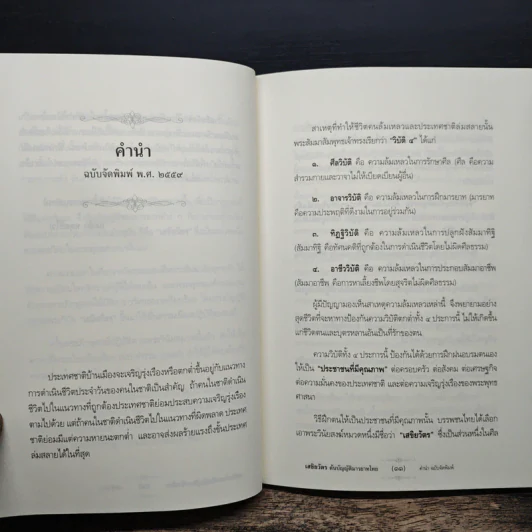 คำนำ
ฉบับจัดพิมพ์ พ.ศ. ๒๕๕๙
ประเทศชาติบ้านเมืองจะเจริญรุ่งเรืองหรือตกต่ำขึ้นอยู่กับแนวทาง
การดำเนินชีวิตประจำวันของคนในชาติเป็นสำคัญ ถ้าคนในชาติดำเนิน
ชีวิตไปในแนวทางที่ถูกต้องประเทศชาติย่อมประสบความเจริญรุ่งเรือง
ตามไปด้วย แต่ถ้าคนในชาติดำเนินชีวิตไปในแนวทางที่ผิดพลาด ประเทศ
ชาติย่อมมีแต่ความหายนะตกต่ำ และอาจส่งผลร้ายแรงถึงขั้นประเทศ
ล่มสลายได้ในที่สุด
สาเหตุที่ทำให้ชีวิตคนล้มเหลวและประเทศชาติล่มสลายนั้น
พระสัมมาสัมพุทธเจ้าทรงเรียกว่า "วิบัติ ๔" ได้แก่
๑. ศีลวิบัติ คือ ความล้มเหลวในการรักษาศีล (ศีล คือความ
สำรวมกายและวาจาไม่ให้เบียดเบียนผู้อื่น)
๒. อาจารวิบัติ คือ ความล้มเหลวในการฝึกมารยาท (มารยาท
คือความประพฤติที่ดีงามในการอยู่ร่วมกัน)
๓. ทิฏฐิวิบัติ คือ ความล้มเหลวในการปลูกฝังสัมมาทิฐิ
(สัมมาทิฐิ คือทัศนคติที่ถูกต้องในการดำเนินชีวิตโดยไม่ผิดศีลธรรม)
๔. อาชีววิบัติ คือ ความล้มเหลวในการประกอบสัมมาอาชีพ
(สัมมาอาชีพ คือการหาเลี้ยงชีพโดยสุจริตไม่ผิดศีลธรรม)
ผู้มีปัญญามองเห็นสาเหตุความล้มเหลวเหล่านี้ จึงพยายามอย่าง
สุดชีวิตที่จะหาทางป้องกันความวิบัติตกต่ำทั้ง ๔ ประการนี้ ไม่ให้เกิดขึ้น
แก่ชีวิตตนและบุตรหลานอันเป็นที่รักของตน
ความวิบัติทั้ง ๔ ประการนี้ ป้องกันได้ด้วยการฝึกฝนอบรมตนเอง
ให้เป็น "ประชาชนที่มีคุณภาพ" ต่อครอบครัว ต่อสังคม ต่อเศรษฐกิจ
ต่อความมั่นคงของประเทศชาติ และต่อความเจริญรุ่งเรืองของพระพุทธ
ศาสนา
วิธีฝึกตนให้เป็นประชาชนที่มีคุณภาพนั้น บรรพชนไทยได้เลือก
เอาพระวินัยสงฆ์หมวดหนึ่งมีชื่อว่า "เสขิยวัตร" ซึ่งเป็นส่วนหนึ่งในศีล
เสขิยวัตร ต้นบัญญัติมารยาทไทย (๑๑) คำนำ ฉบับจัดพิมพ์